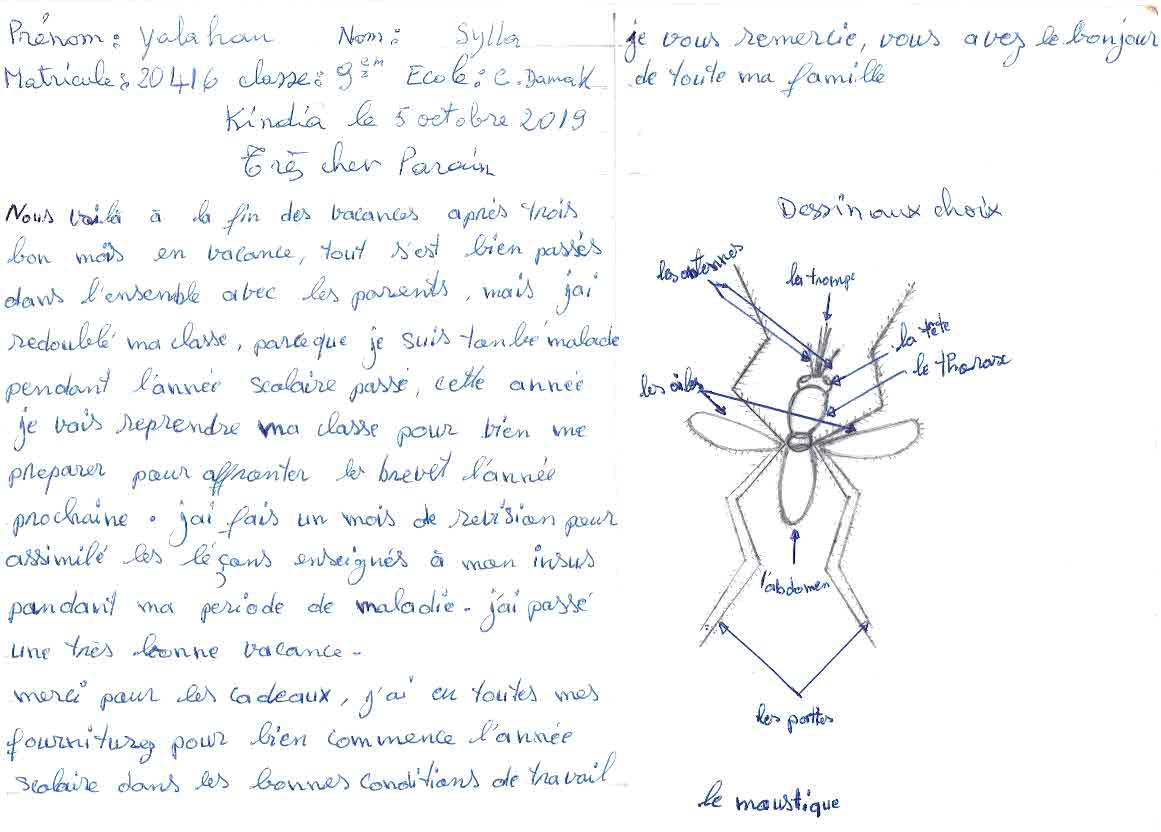 Prénom: Yalahan Nom: Sylla
Matricule: 20416 classe: 9em Ecole: C. Damak
Kindia le 5 octobre 2019
Très cher Parain
Nous voilà à la fin des vacances après trois
bon mois en vacance, tout s'est bien passés
dans l'ensemble avec les parents, mais j'ai
redoublé ma classe, parceque je suis tanbé malade
pendant l'année scolaire passé, cette année
je vais reprendre ma classe pour bien me
preparer pour affronter le brevet l'année
prochaine. j'ai fais un mois de revision pour
assimilé les léçons enseignés à mon insus
pandant ma periode de maladie. j'ai passé
une très bonne vacance.
merci pour les cadeaux, j'ai eu toutes mes
fournitures pour bien commence l'année
scolaire dans les bonnes conditions de travail
je vous remercie, vous avez le bonjour
de toute ma famille
Dessin aux choix
les antennes
la trompe
la tête
le thorax
les ailes
l'abdomen
les pattes
le moustique